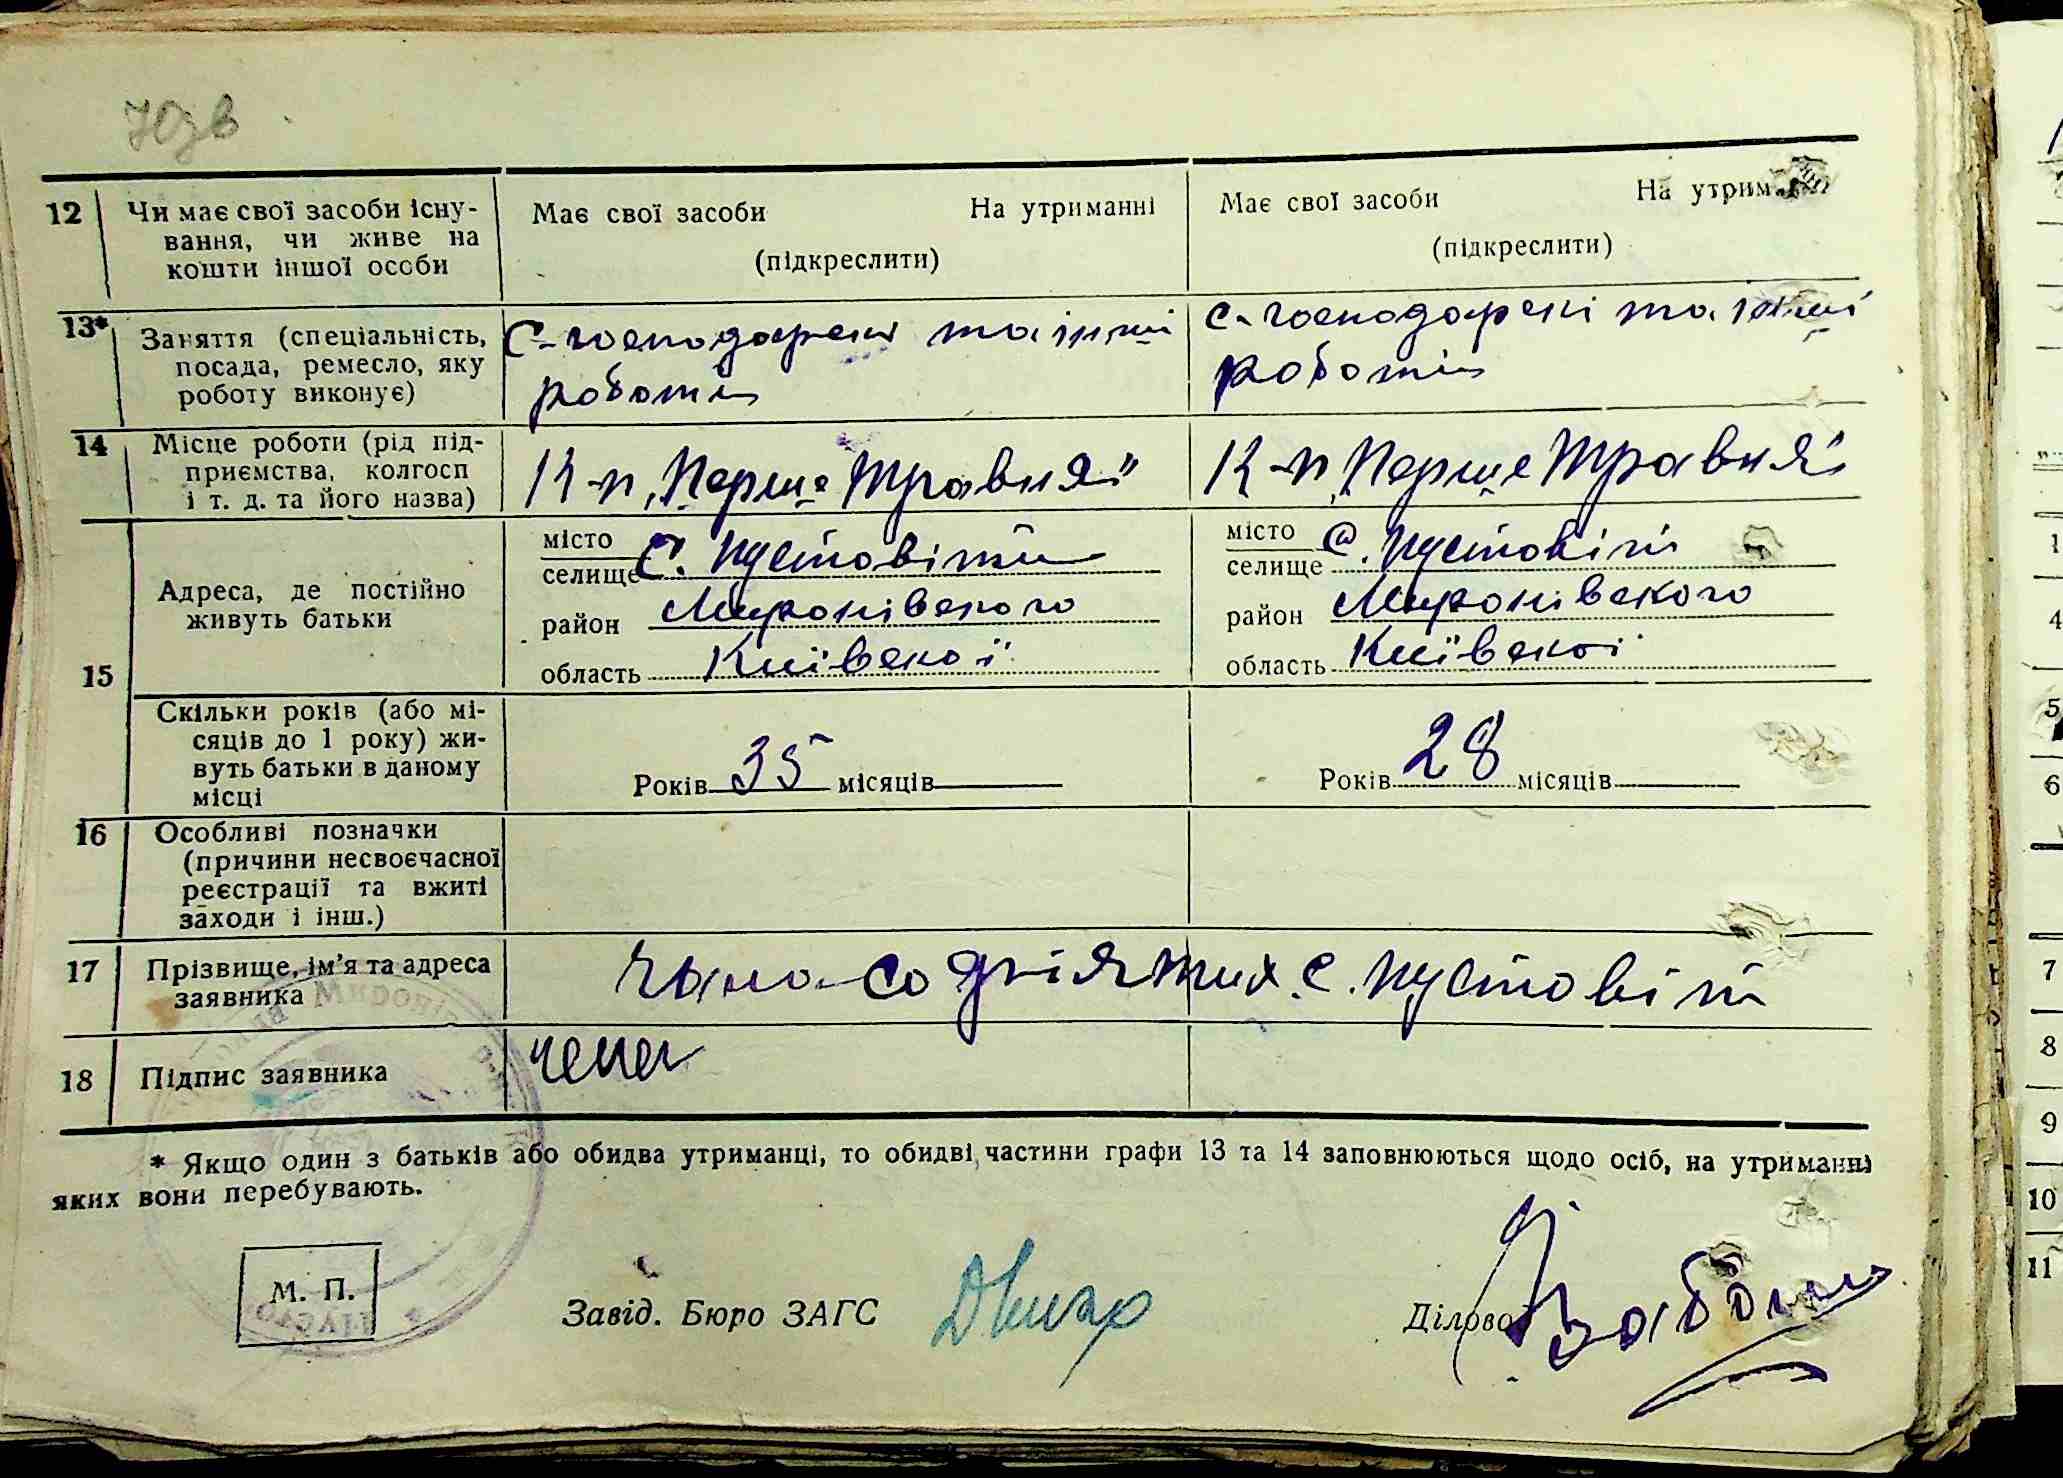 70зв
12 Чи має свої засоби існу-
вання, чи живе на
кошти іншої особи
Має свої засоби На утриманні
(підкреслити)
Має свої засоби На утрим
(підкреслити)
13* Заняття (спеціальність,
посада, ремесло, яку
роботу виконує)
С-господарські та інші
роботи
С-господарскі та інші
роботи
14 Місце роботи (рід під-
приємства, колгосп
і т. д. та його назва)
К-п „Перше Травня"
К-п „Перше Травня"
15
Адреса, де постійно
живуть батьки
місто
селище с. Пустовіти
район Миронівского
область Київскої
місто
селище с. Пустовіти
район Миронівского
область Київскої
Скільки років (або мі-
сяців до 1 року) жи-
вуть батьки в даному
місці
Років 35 місяців
Років 28 місяців
16 Особливі позначки
(причини несвоєчасної
реєстрації та вжиті
заходи і інш.)
17 Прізвище, ім'я та адреса
заявника
с. Пустовіти
18 Підпис заявника
* Якщо один з батьків або обидва утриманці, то обидві частини графи 13 та 14 заповнюються щодо осіб, на утриманні
яких вони перебувають.
М. П.
Завід. Бюро ЗАГС
Діловод
1
4
5
6
7
8
9
10
11